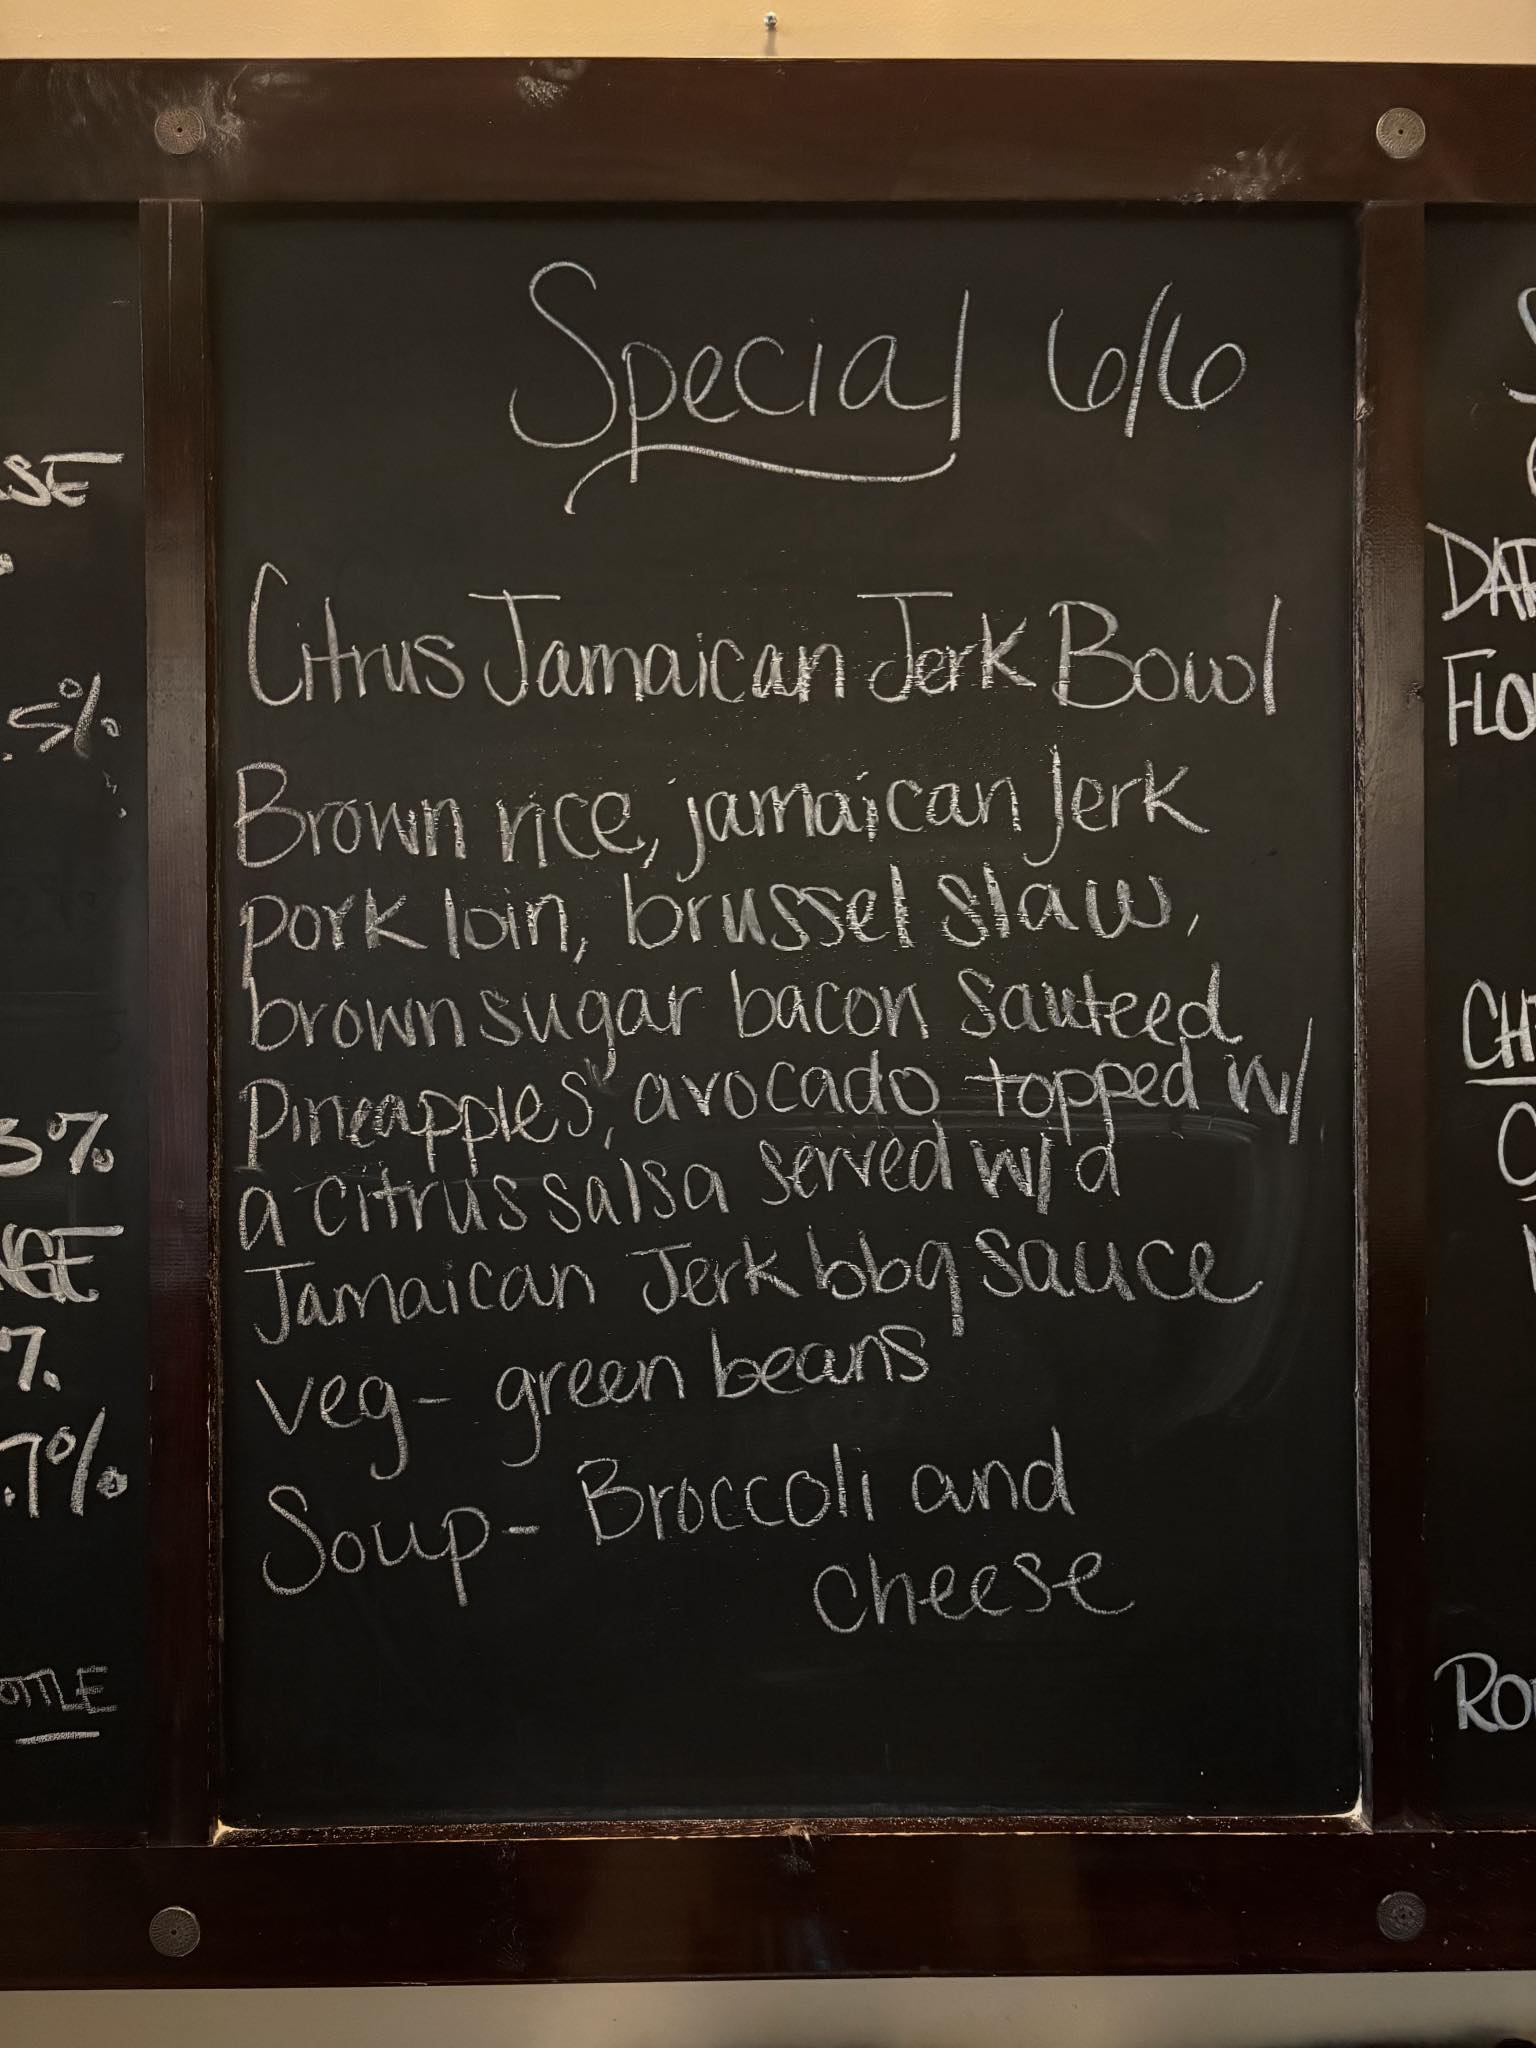 Special 6/6
Citrus Jamaican Jerk Bowl
Brown rice, jamaican Jerk
pork loin, brussel slaw,
brown sugar bacon sauteed
Pineapples, avocado topped w/
a citrus salsa served w/ a
Jamaican Jerk bbq sauce
veg- green beans
Soup- Broccoli and
cheese
SE
.5%
3%
NGE
7.
.7%
OTTLE
DAR
FLO
CHE
RO